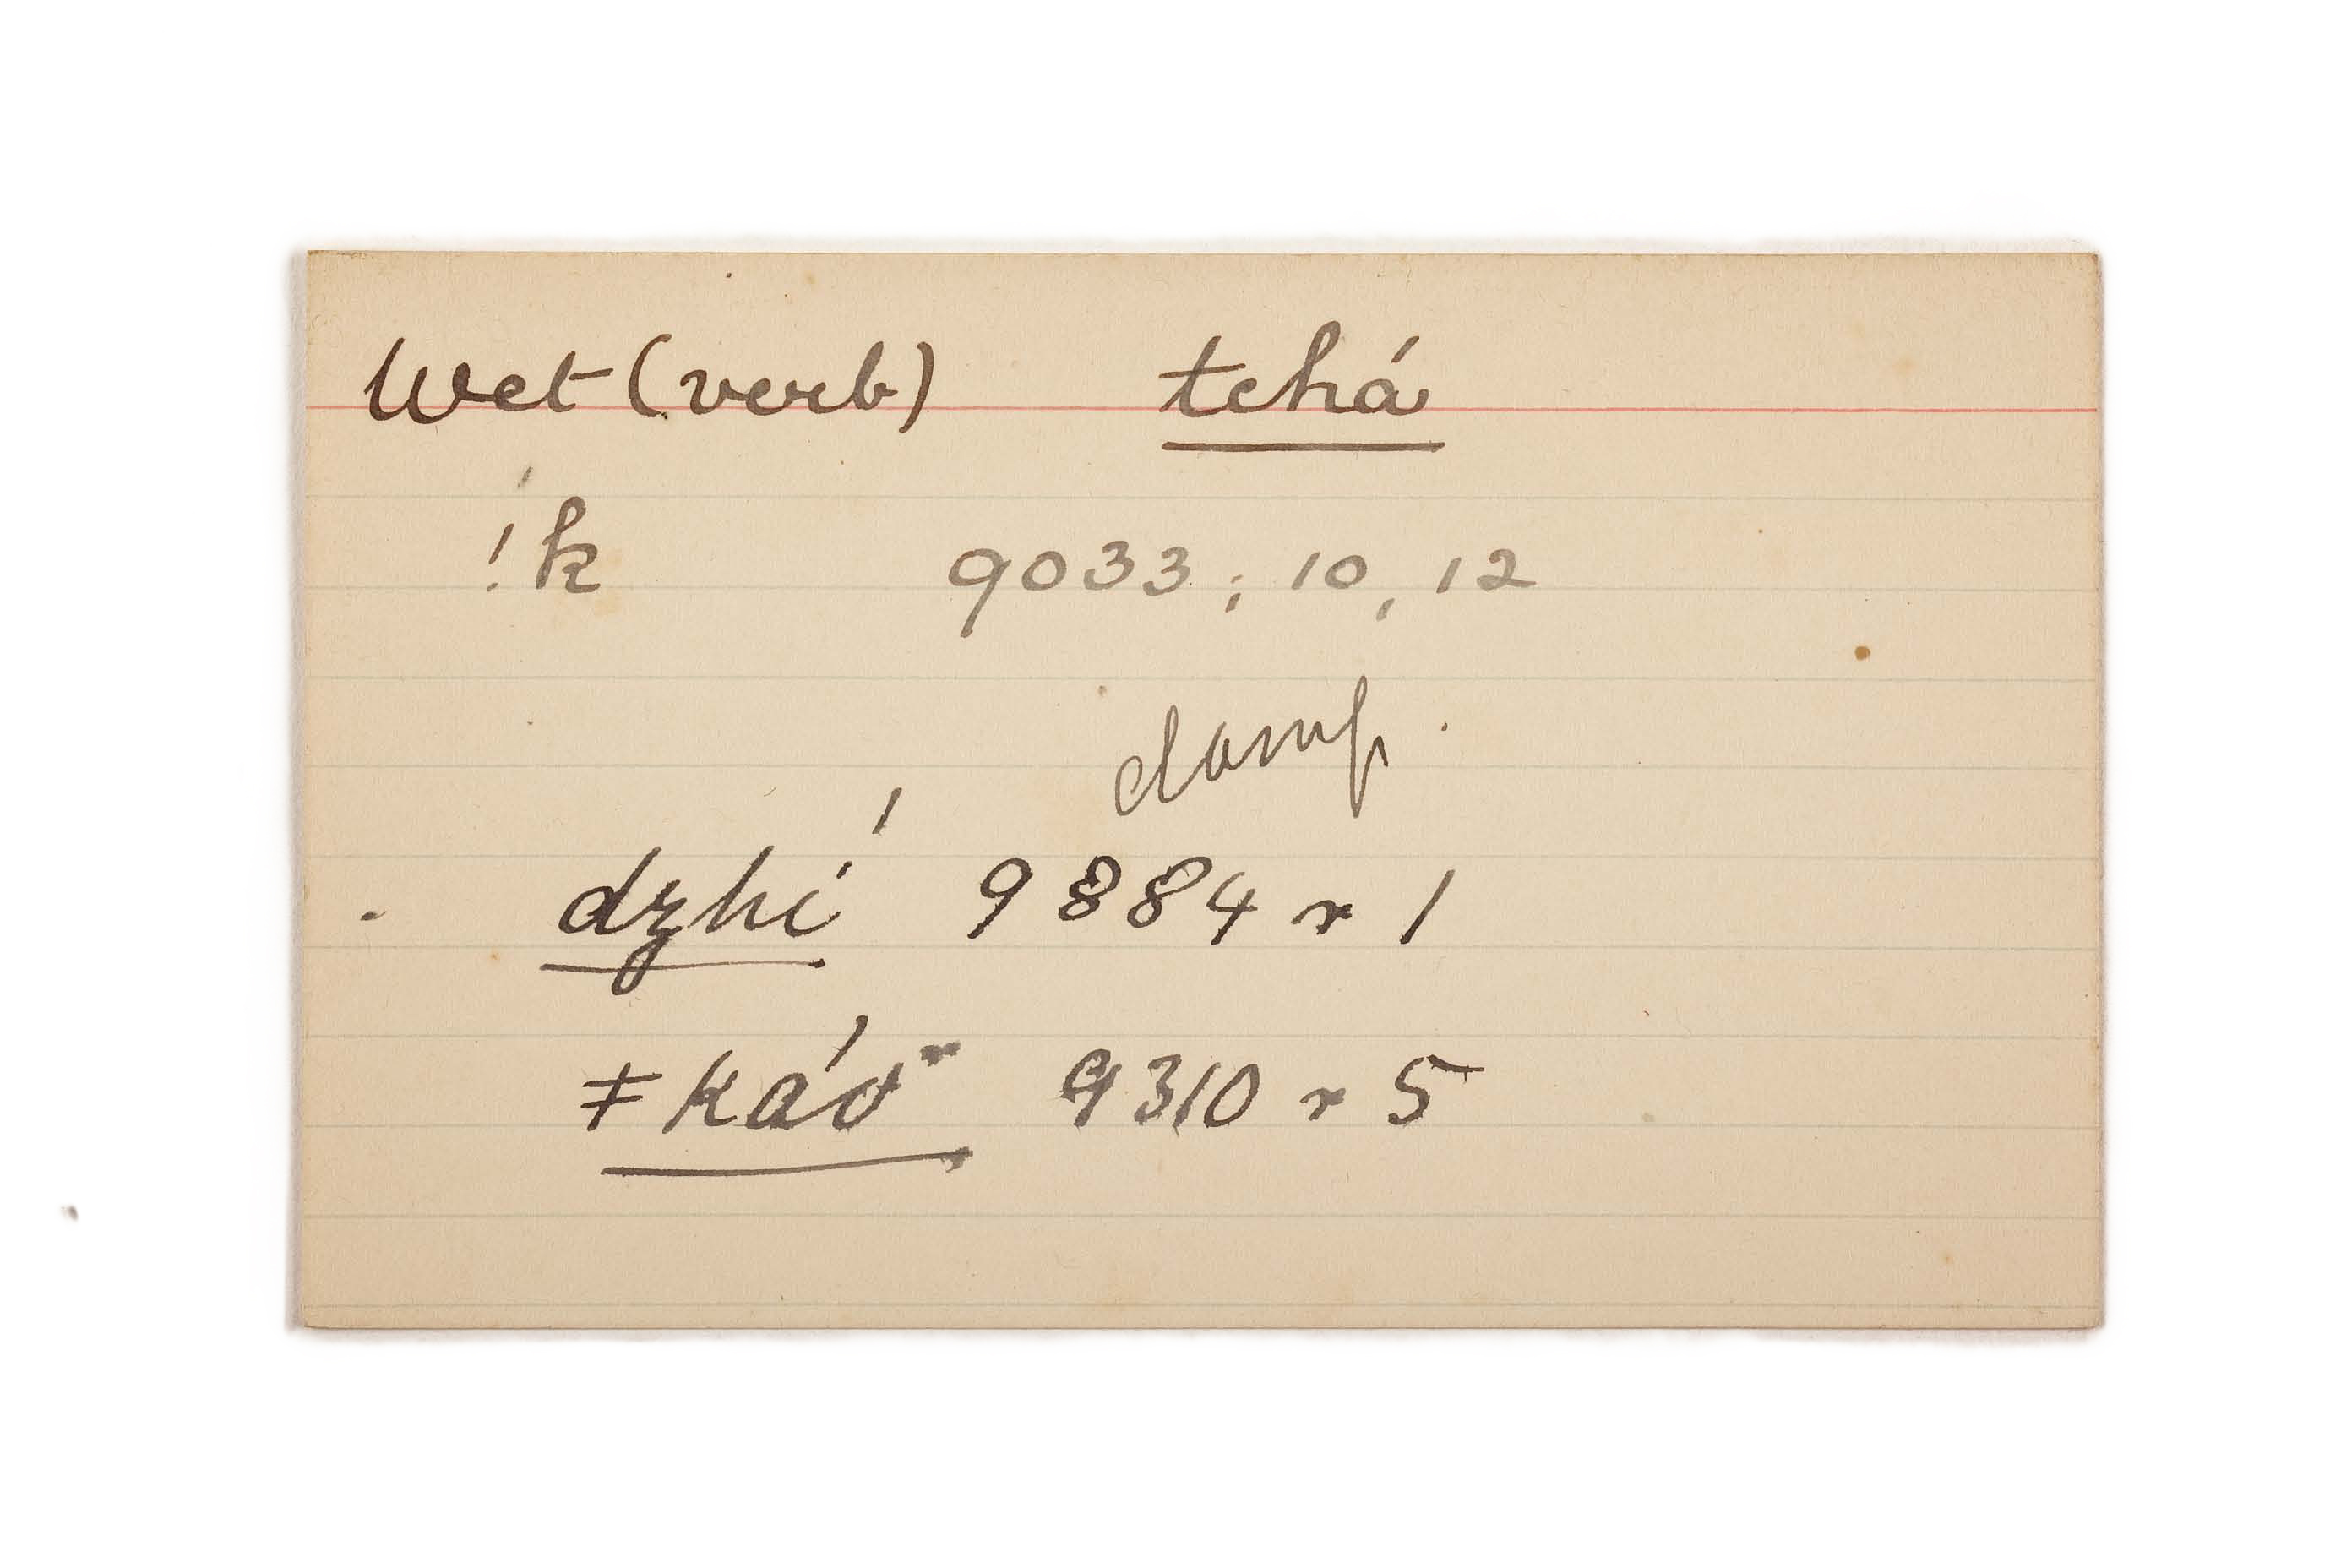 Wet (verb) tchá
!k 9033; 10, 12
damp
dzhí 9884 r 1
ǂkáö 9310 r 5